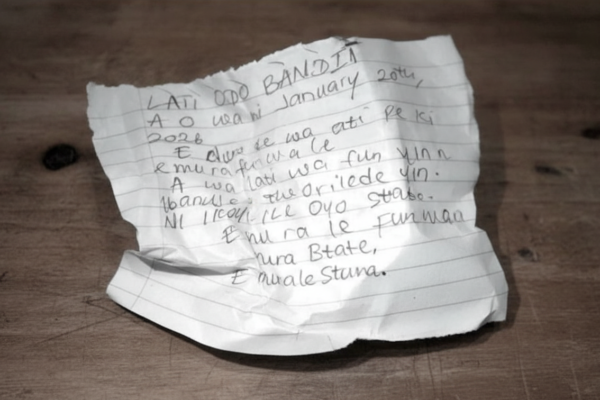 LATI ODO BANDIT
A O wa ni January 20th,
2026
E duro de wa ati pe ki
emurafunwa le
A wa lati wa fun yinn
ilede yin.
NI ILE Oyo State.
Emura le Funman
mura Btate,
E muale Stuna.